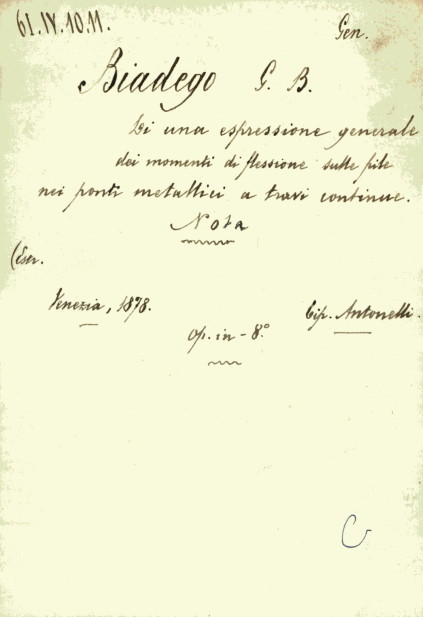 61.IV.10.11.
Gen.
Biadego G. B.
Di una espressione generale
dei momenti di flessione sulle pile
nei ponti metallici a travi continue.
Nota
(Eser.
Venezia, 1878. Tip. Antonelli.
Op. in - 8.°
C